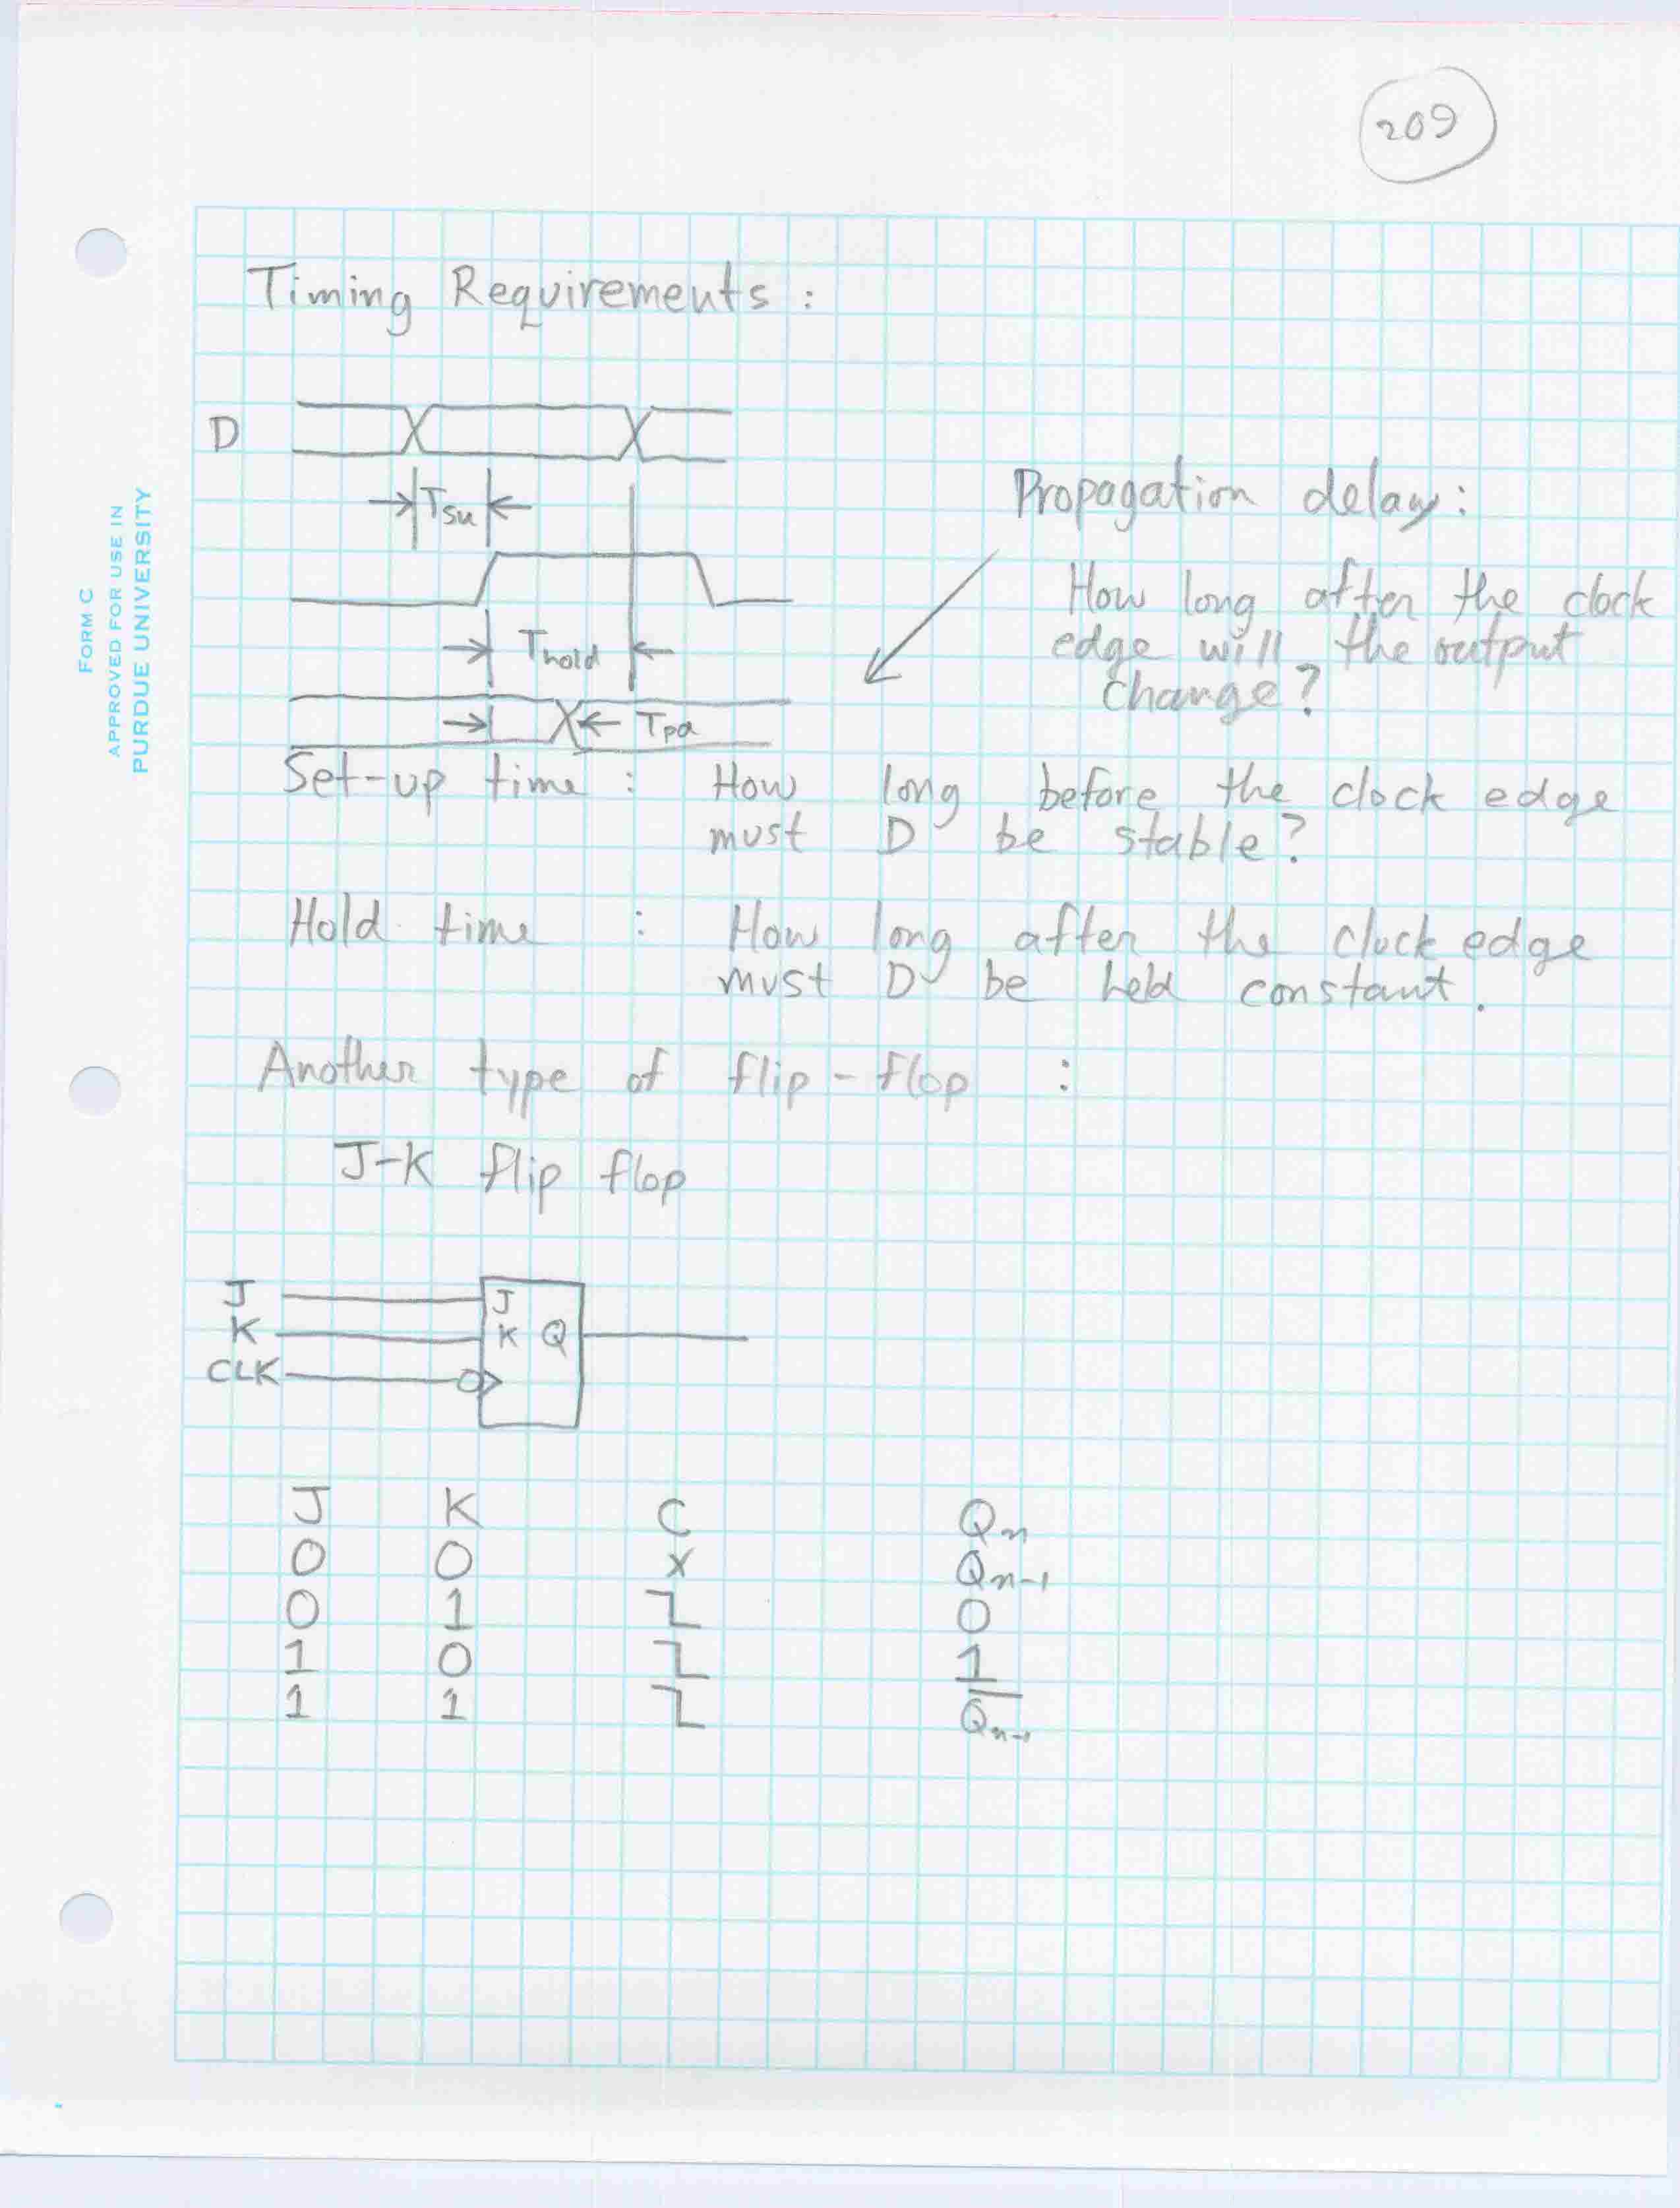 209
FORM C
APPROVED FOR USE IN
PURDUE UNIVERSITY
Timing Requirements :
D
Tsu
Propagation delay:
How long after the clock
edge will the output
change?
Thold
Tpd
Set-up time : How long before the clock edge
must D be stable?
Hold time : How long after the clock edge
must D be held constant.
Another type of flip-flop :
J-K flip flop
J
K
CLK
J
K Q
J K C Qn
0 0 X Qn-1
0 1 0
1 0 1
1 1 Q̅n-1